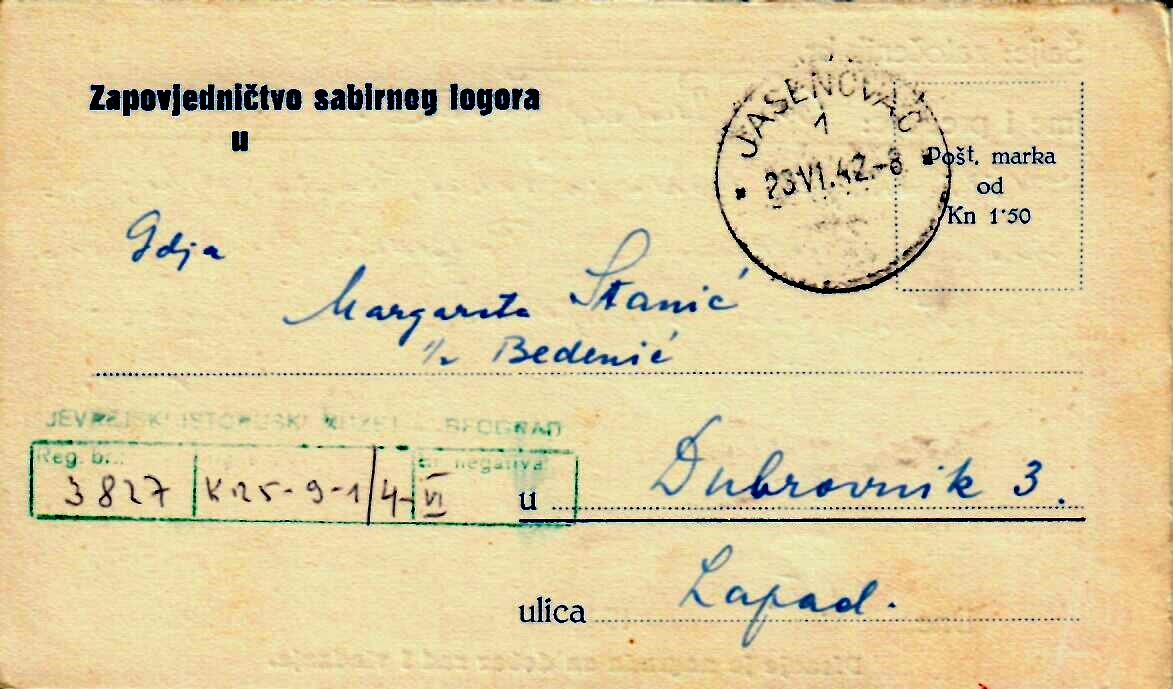 Zapovjedničtvo sabirnog logora
u
JASENOVAC
1
23 VI. 42.-8
Pošt. marka
od
Kn 1·50
Gdja
Margareta Stanić
Bedenić
JEVREJSKI ISTORIJSKI MUZEJ - BEOGRAD
Reg. br.: negativa
3827 K.25-9-1/4-VI
u Dubrovnik 3.
ulica Lapad.